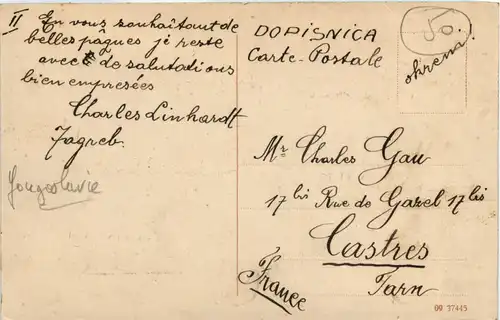 II
En vous souhaîtant de
belles pâques je reste
avec de salutations
bien empresées
Charles Linhardt
Zagreb.
Yougoslavie
DOPISNICA
Carte-Postale
50
okrenui!
Mr Charles Gau
17bis Rue de Garel 17bis
Castres
Tarn
France
09 37445